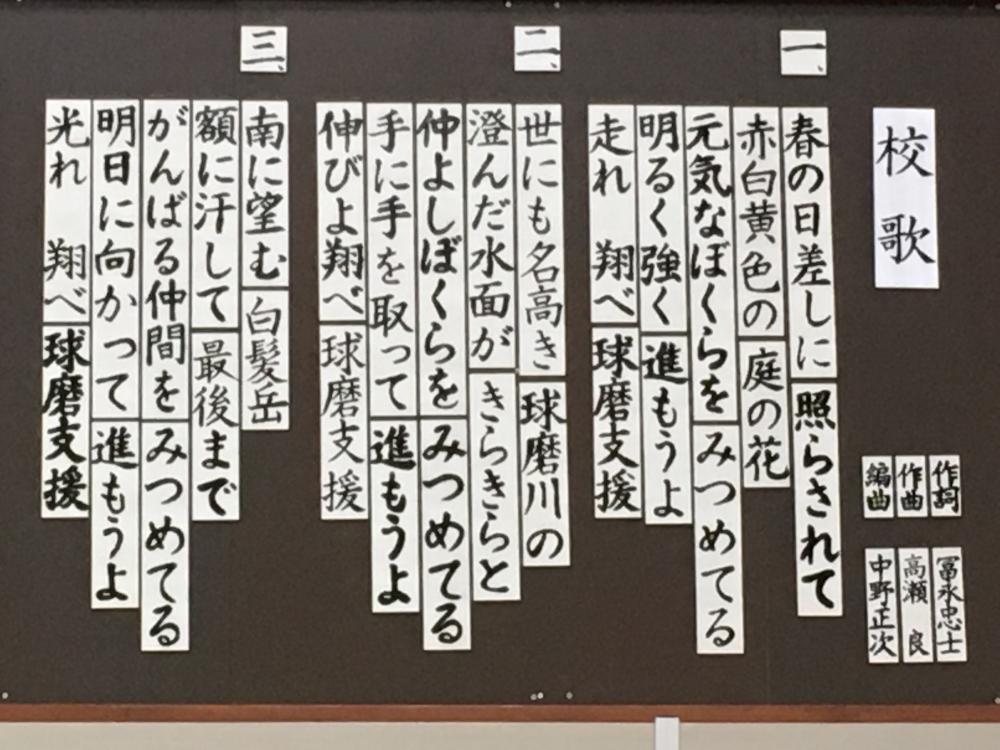 校歌
作詞 冨永忠士
作曲 高瀬 良
編曲 中野正次
一、
春の日差しに 照らされて
赤白黄色の 庭の花
元気なぼくらを みつめてる
明るく強く 進もうよ
走れ 翔べ 球磨支援
二、
世にも名高き 球磨川の
澄んだ水面が きらきらと
仲よしぼくらを みつめてる
手に手を取って 進もうよ
伸びよ翔べ 球磨支援
三、
南に望む 白髪岳
額に汗して 最後まで
がんばる仲間を みつめてる
明日に向かって 進もうよ
光れ 翔べ 球磨支援